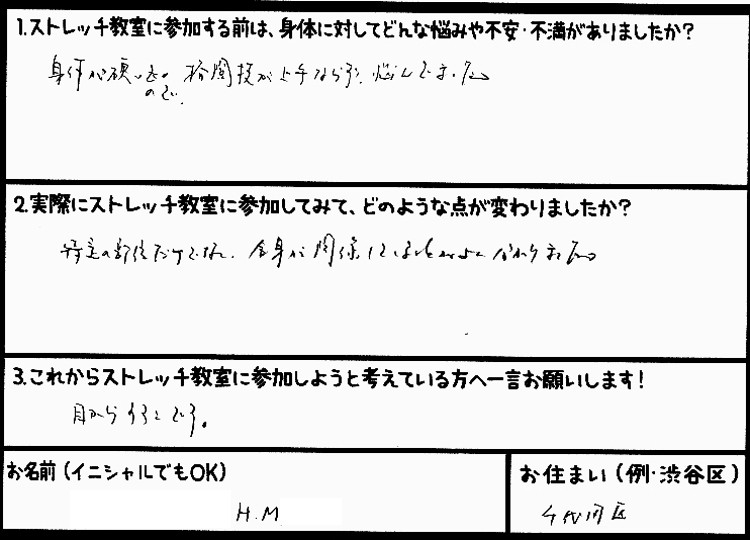 1.ストレッチ教室に参加する前は、身体に対してどんな悩みや不安・不満がありましたか?
身体が硬いものので、格闘技が上手くならず、悩んでました。
2.実際にストレッチ教室に参加してみて、どのような点が変わりましたか?
特定の部位だけでなく、全身が関係していることがよく分かりました。
3.これからストレッチ教室に参加しようと考えている方へ一言お願いします!
目からウロコです。
お名前(イニシャルでもOK)
H.M
お住まい(例・渋谷区)
千代田区